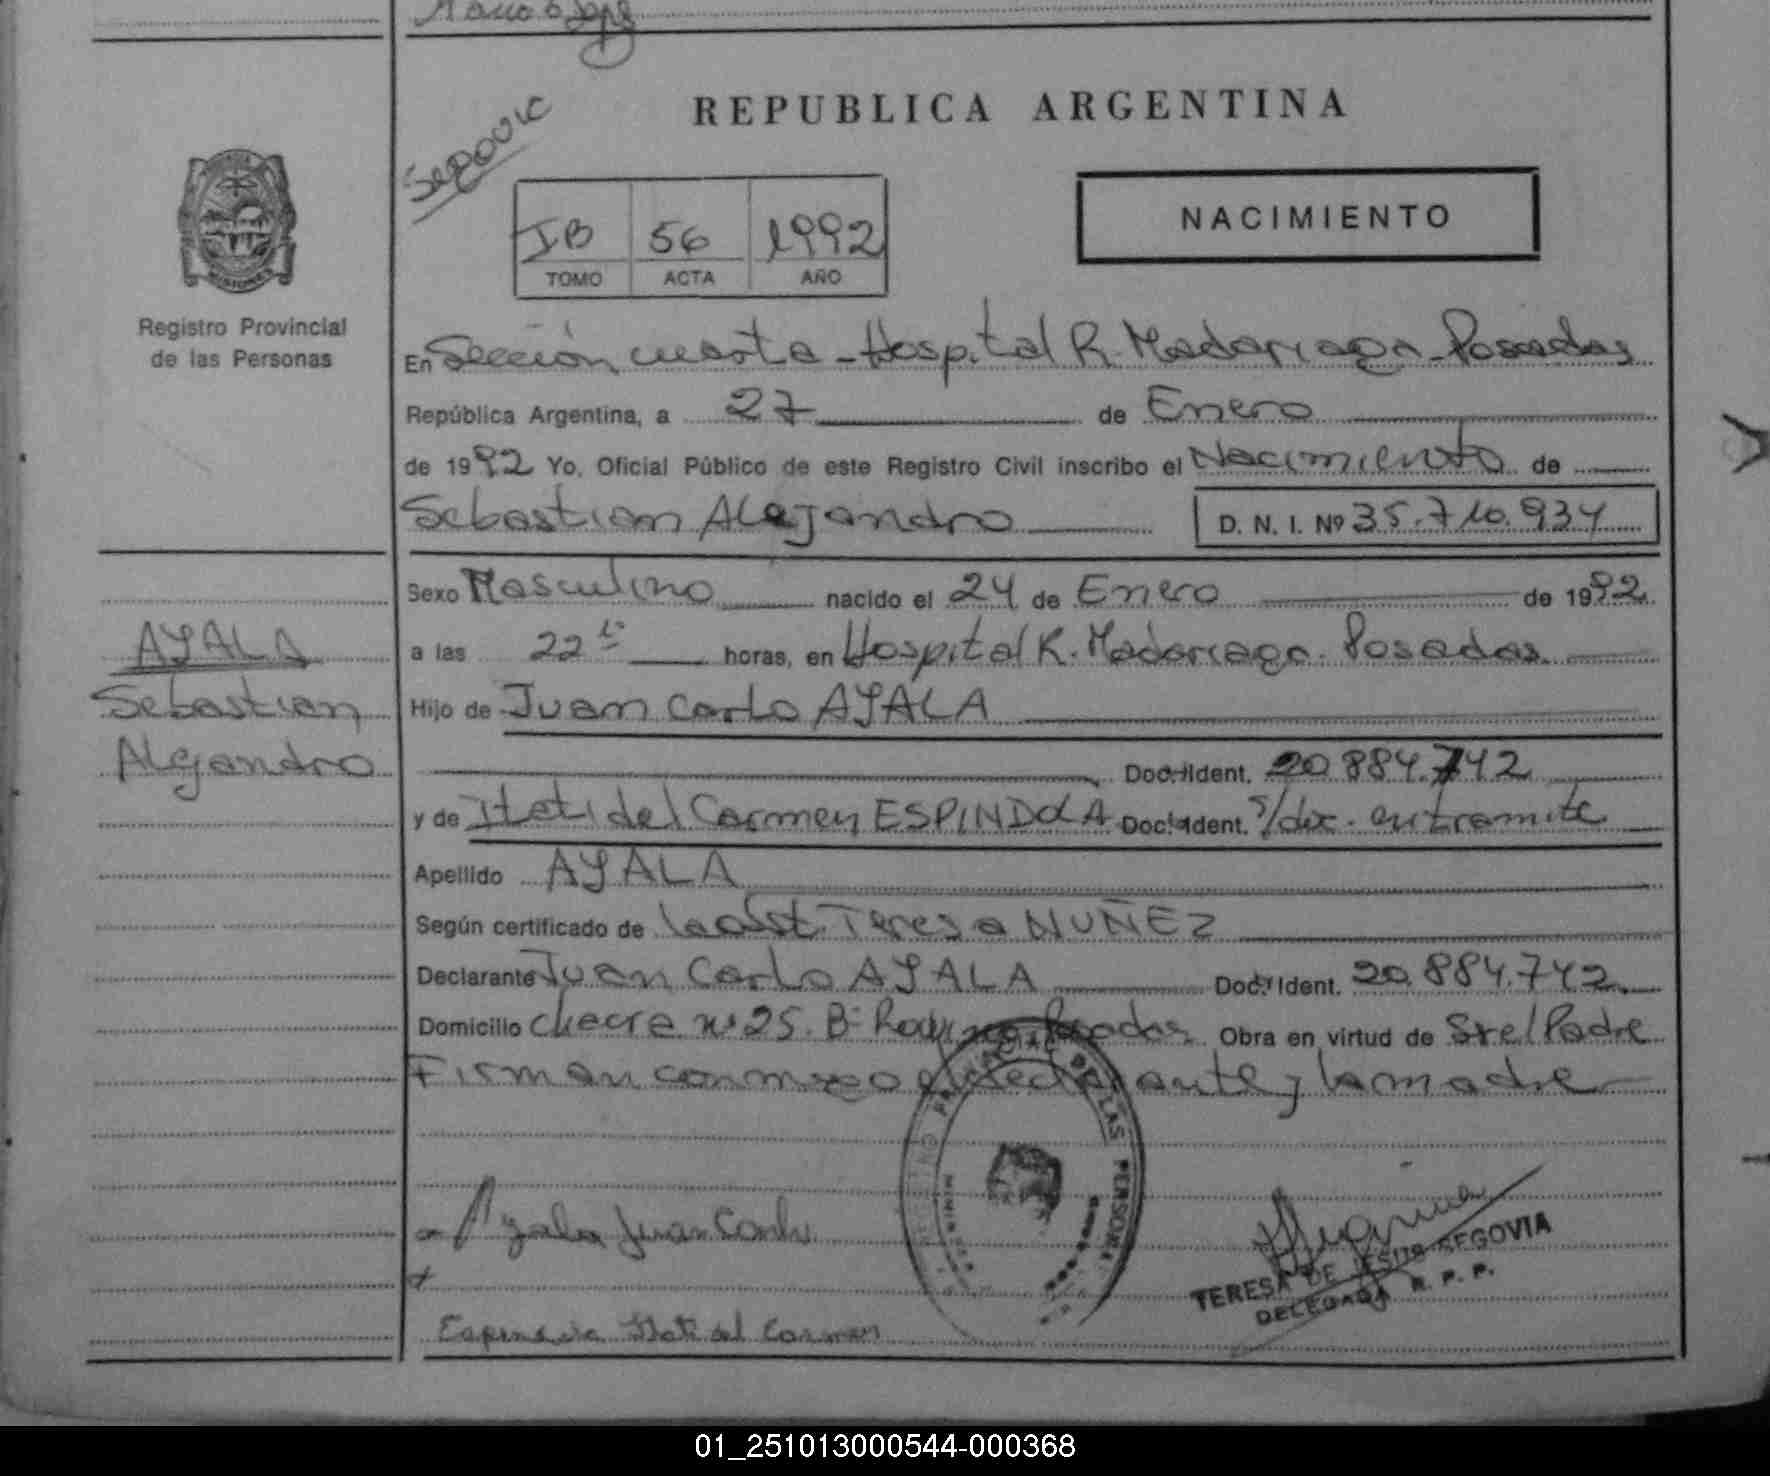 REPUBLICA ARGENTINA
IB 56 1992
TOMO ACTA AÑO
NACIMIENTO
Registro Provincial
de las Personas
En Sección cuarta - Hospital R. Madariaga - Posadas
República Argentina, a 27 de Enero
de 1992 Yo, Oficial Público de este Registro Civil inscribo el Nacimiento de
Sebastian Alejandro D. N. I. Nº 35.710.934
Sexo Masculino nacido el 24 de Enero de 1992
a las 22 horas, en Hospital R. Madariaga. Posadas
Hijo de Juan Carlo AYALA
Doc. Ident. 20.884.742
y de Itati del Carmen ESPINDOLA Doc. Ident. s/doc. en tramite
Apellido AYALA
Según certificado de la obst. Teresa NUÑEZ
Declarante Juan Carlo AYALA Doc. Ident. 20.884.742
Domicilio chacra nº 25. Bº Posadas Obra en virtud de Ser el Padre
Firman conmigo el declarante y la madre
AYALA
Sebastian
Alejandro
Ayala Juan Carlo
Itati del Carmen
PERSONAS
TERESA DE JESUS SEGOVIA
DELEGADA R. P. P.
01_251013000544-000368